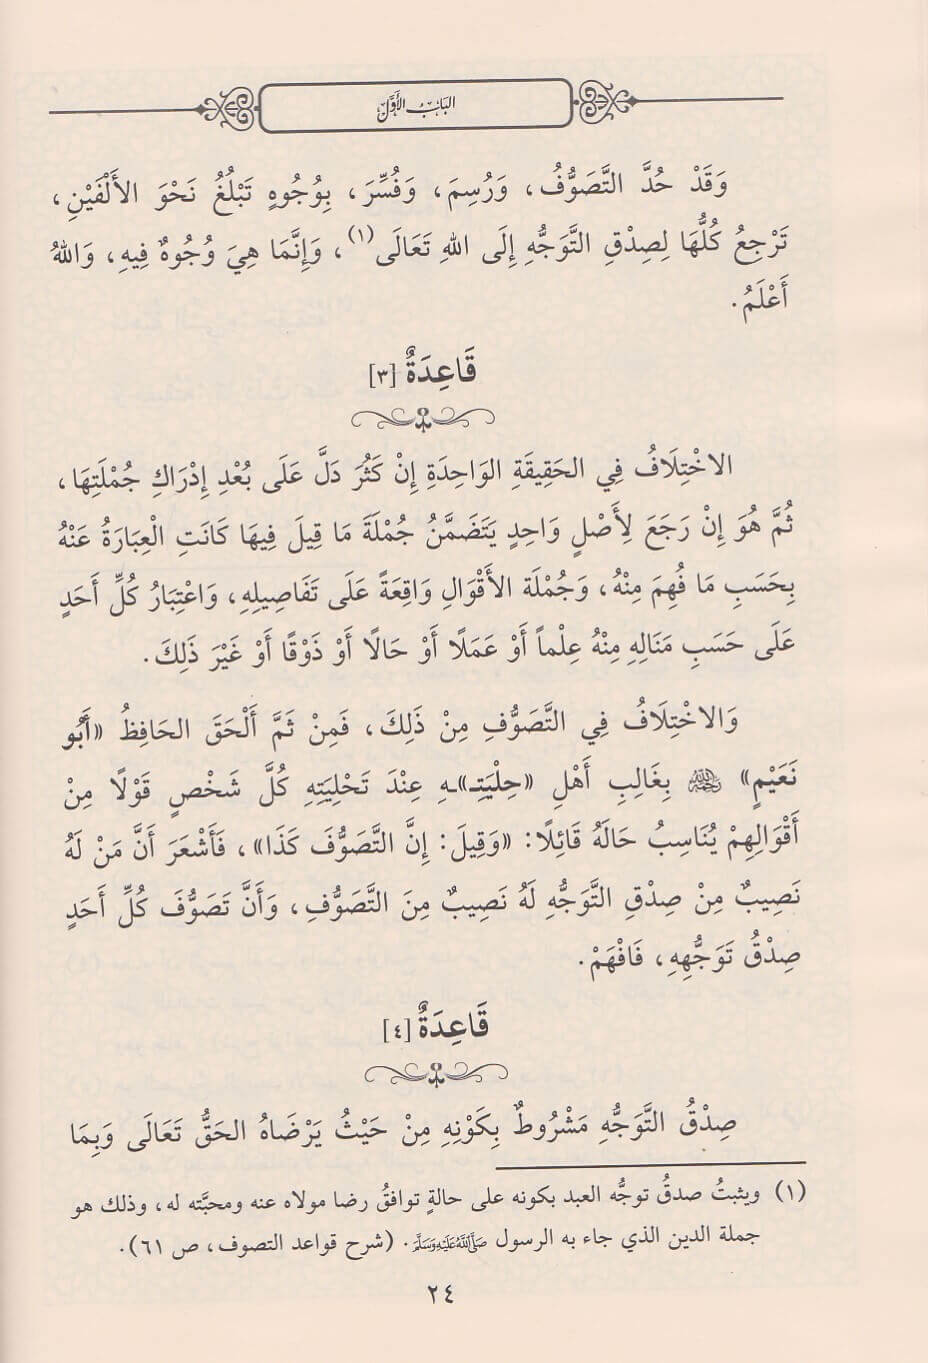 البَابُ الأَوَّلُ
وَقَدْ حُدَّ التَّصَوُّفُ، وَرُسِمَ، وَفُسِّرَ، بِوُجُوهٍ تَبْلُغُ نَحْوَ الأَلْفَيْنِ،
تَرْجِعُ كُلُّهَا لِصِدْقِ التَّوَجُّهِ إِلَى اللهِ تَعَالَى(١)، وَإِنَّمَا هِيَ وُجُوهٌ فِيهِ، وَاللهُ
أَعْلَمُ.
قَاعِدَةٌ [٣]
الاخْتِلَافُ فِي الحَقِيقَةِ الوَاحِدَةِ إِنْ كَثُرَ دَلَّ عَلَى بُعْدِ إِدْرَاكِ جُمْلَتِهَا،
ثُمَّ هُوَ إِنْ رَجَعَ لِأَصْلٍ وَاحِدٍ يَتَضَمَّنُ جُمْلَةَ مَا قِيلَ فِيهَا كَانَتِ الْعِبَارَةُ عَنْهُ
بِحَسَبِ مَا فُهِمَ مِنْهُ، وَجُمْلَة الأَقْوَالِ وَاقِعَةً عَلَى تَفَاصِيلِهِ، وَاعْتِبَارُ كُلِّ أَحَدٍ
عَلَى حَسَبِ مَنَالِهِ مِنْهُ عِلْماً أَوْ عَمَلًا أَوْ حَالًا أَوْ ذَوْقًا أَوْ غَيْرَ ذَلِكَ.
وَالاخْتِلَافُ فِي التَّصَوُّفِ مِنْ ذَلِكَ، فَمِنْ ثَمَّ أَلْحَقَ الحَافِظُ «أَبُو
نَعَيْمٍ» رحمه الله بِغَالِبِ أَهْلِ «حِلْيَتِـ»ـهِ عِنْدَ تَحْلِيَتِهِ كُلَّ شَخْصٍ قَوْلًا مِنْ
أَقْوَالِهِمْ يُنَاسِبُ حَالَهُ قَائِلًا: «وَقِيلَ: إِنَّ التَّصَوُّفَ كَذَا»، فَأَشْعَرَ أَنَّ مَنْ لَهُ
نَصِيبٌ مِنْ صِدْقِ التَّوَجُّهِ لَهُ نَصِيبٌ مِنَ التَّصَوُّفِ، وَأَنَّ تَصَوُّفَ كُلِّ أَحَدٍ
صِدْقُ تَوَجُّهِهِ، فَافْهَمْ.
قَاعِدَةٌ [٤]
صِدْقُ التَّوَجُّهِ مَشْرُوطٌ بِكَوْنِهِ مِنْ حَيْثُ يَرْضَاهُ الحَقُّ تَعَالَى وَبِمَا
(١) ويثبتُ صدقُ توجُّه العبد بكونه على حالةٍ توافقُ رضا مولاه عنه ومحبَّته له، وذلك هو
جملة الدين الذي جاء به الرسول صَلَّى اللهُ عَلَيْهِ وَسَلَّمَ. (شرح قواعد التصوف، ص ٦١).
٢٤